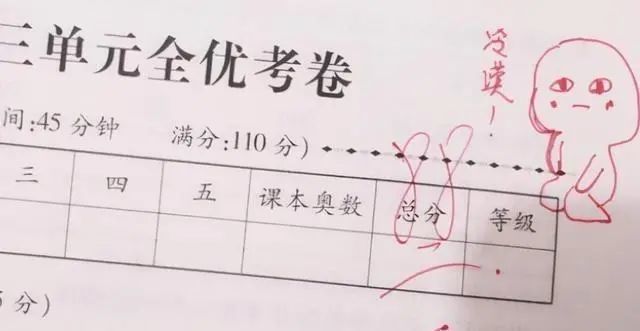 三单元全优考卷
冷漠!
间:45 分钟 满分:110 分)
88
三 四 五 课本奥数 总分 等级
5 分)